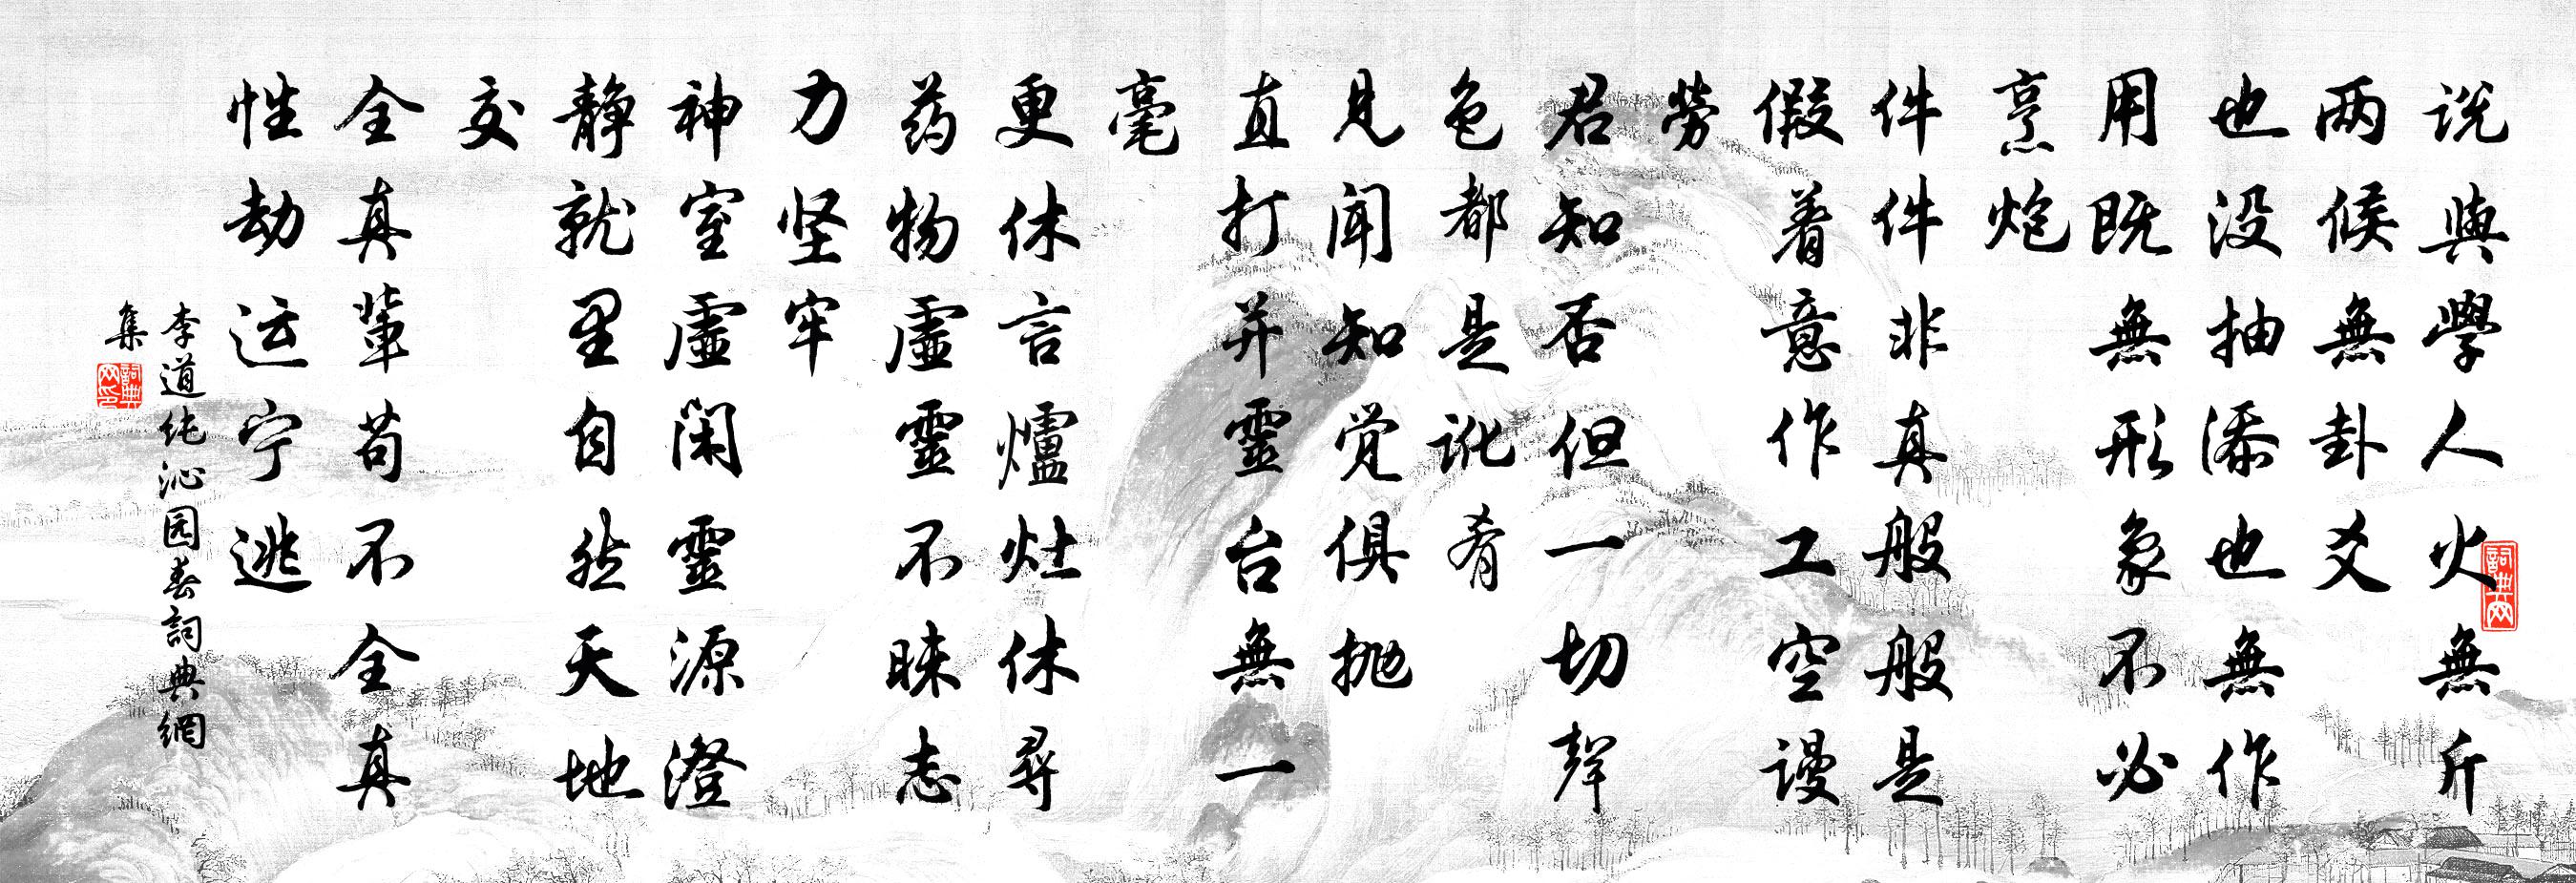 说與學人火無斤
两候無卦爻
也没抽添也無作
用既無形象不必
烹炮
件件非真般般是
假着意作工空谩
劳
君知否但一切聲
色都是讹肴
見闻知知觉俱抛
直打并靈台無一
毫
更休言爐灶休尋
药物虚靈不昧志
力坚牢
神室虚闲靈源澄
静就里自然天地
交
全真輩苟不全真
性劫运宁逃
李道纯沁园春詞典網
集
詞典网
詞典网印